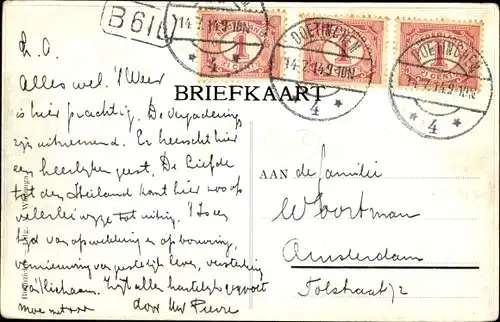 B 61
DOETINCHEM
DOETINCHEM
1 CENT
1 CENT
1 CENT
4
4
4
L.O.
BRIEFKAART
Alles wel. 't Weer
is hier prachtig. De Vergadering
zijn uitnemend. Er heerscht hier
een heerlijken geest. De Liefde
tot den Heiland komt hier zoo op
velerlei wijze tot uiting. 't Is een
tijd van opwekking en opbouwing,
vernieuwing van geestelijk leven, versterking
van lichaam. Zijt allen hartelijk gegroet
door Uw Pierre
AAN de familie
Woortman
Amsterdam
Tolstraat 72